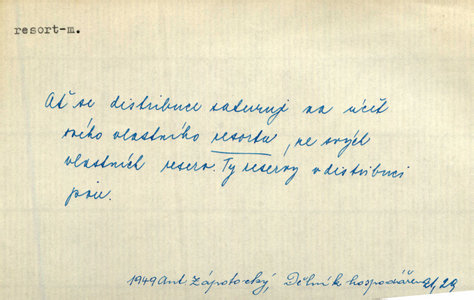 resort-m.
Ať se distribuce saturují na účet
svého vlastního resortu, ne svých
vlastních reserv. Ty reservy v distribuci
jsou.
1949 Ant. Zápotocký, Dělník hospodářem, 29